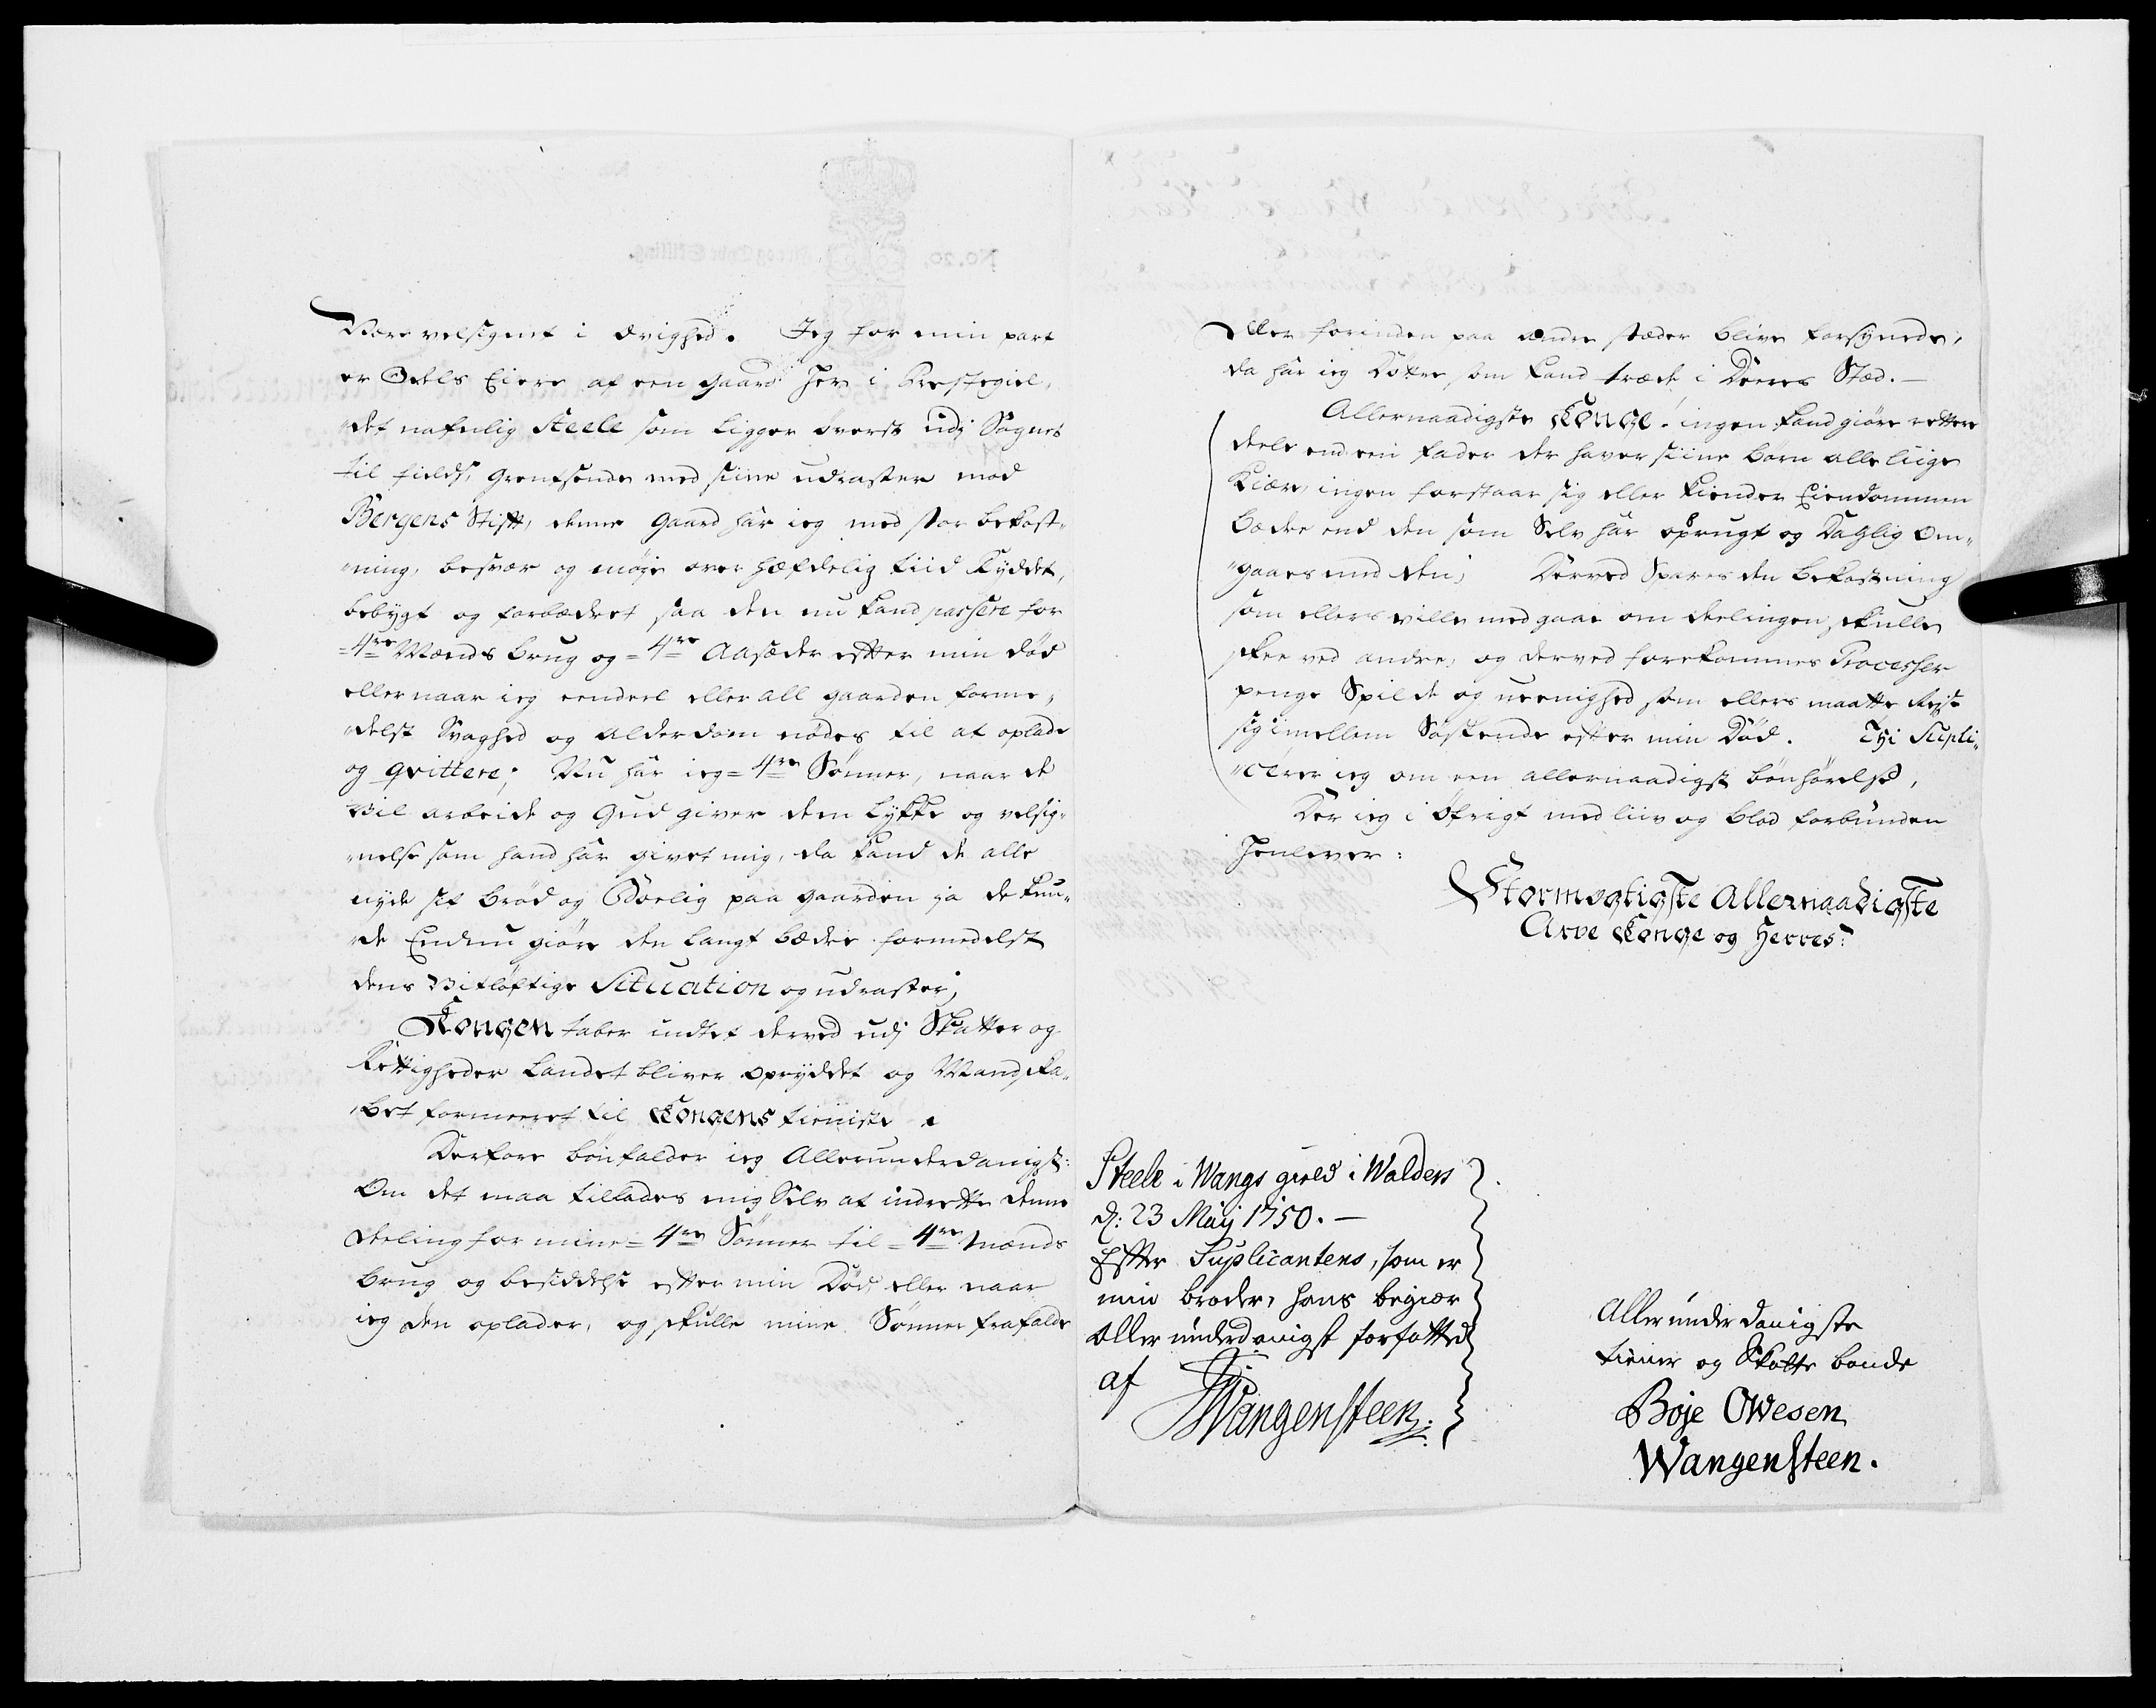 Være velsignet i Ævighed. Jeg for min part
er Odels Eiere af een gaard her i Prestegiel,
det nafnlig Steele som ligger øverst udj Sognet
til fields, grentsende med siine udraster mod
Bergens Stift, denne gaard har ieg med stor bekost-
ning, besvær og møye over hæfdelig tiid Ryddet,
bebygt og forbædret saa den nu kand passere for
=4re Mænds brug og =4re Aasæder efter min død
eller naar ieg eendeel eller all gaarden forme-
delst Svaghed og alderdom nødes til at oplade
og qvittere; Nu har ieg =4re Sønner, naar de
vil arbeide og Gud giver dem Lykke og velsig-
nelse som hand har givet mig, da kand de alle
nyde sit brød og Boelig paa gaarden ja de kun-
de Endnu giøre den langt bædre formedelst
dens vitløftige Situation og udraster;
Kongen taber indtet derved udj Skatter og
Rettigheder Landet bliver opryddet og Mandska-
bet formeeret til Kongens tieniste.
Derfore bønfalder ieg Allerunderdanigst:
Om det maa tillades mig Selv at indrette denne
deeling for mine =4re Sønner til =4re Mænds
brug og besiddelse efter min Død, eller naar
ieg den oplader, og skulle mine Sønner frafalde
Eller forinden paa andre stæder blive forsynede,
da har ieg Døttre som kand træde i Deeres Stæd.
Allernaadigste Konge! ingen kand giøre rettere
deele end een fader der haver siine børn alle liige
Kiær, ingen forstaar sig eller kiender Eiendommen
bædre end den som Selv har oprugt og Daglig Om-
gaaes med den; Derved Spares den bekostning
som ellers ville medgaae om deelingen skulle
skee ved andre, og derved forekommes Processer
penge Spilde og ueenighed som ellers maatte Reise
sig imellem Søskende efter min Død. Thi Supli-
cerer ieg om een allernaadigst bønhørelse,
Der ieg i øfrigt med liiv og blod forbunden
henlever:
Stormegtigste Allernaadigste
Arve Konge og Herres:
Steele i Wangs gield i Walders
d: 23 Maij 1750.
Efter Suplicantens, som er
min broder, hans begiær
allerunderdanigst forfattet
af
Wangensteen.
Allerunderdanigste
tiener og Skatte bonde
Boje Owesen
Wangensteen.